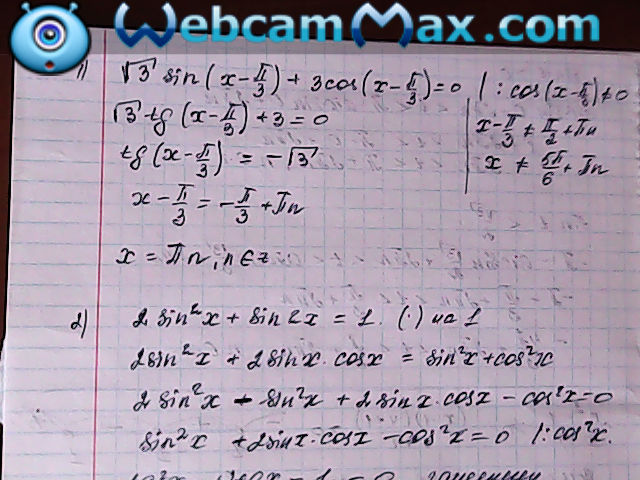 WebcamMax.com
1) √3 sin(x-π/3) + 3cos(x-π/3)=0 | :cos(x-π/3)≠0
√3 tg(x-π/3)+3=0
x-π/3 ≠ π/2+πn
tg(x-π/3) = -√3
x ≠ 5π/6+πn
x-π/3 = -π/3+πn
x = πn, n∈z
2) 2sin²x + sin2x = 1. (·) на 1
2sin²x + 2sinx·cosx = sin²x+cos²x
2sin²x - sin²x + 2sinx·cosx - cos²x=0
sin²x +2sinx·cosx - cos²x=0 |:cos²x.